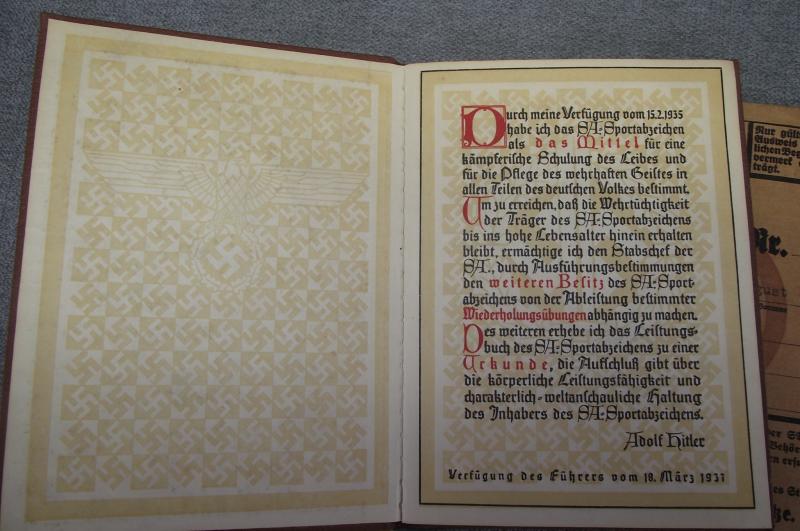 Durch meine Verfügung vom 15.2.1935
habe ich das SA-Sportabzeichen
als das Mittel für eine
kämpferische Schulung des Leibes und
für die Pflege des wehrhaften Geistes in
allen Teilen des deutschen Volkes bestimmt.
Um zu erreichen, daß die Wehrtüchtigkeit
der Träger des SA-Sportabzeichens
bis ins hohe Lebensalter hinein erhalten
bleibt, ermächtige ich den Stabschef der
SA., durch Ausführungsbestimmungen
den weiteren Besitz des SA-Sport-
abzeichens von der Ableistung bestimmter
Wiederholungsübungen abhängig zu machen.
Des weiteren erhebe ich das Leistungs-
buch des SA-Sportabzeichens zu einer
Urkunde, die Aufschluß gibt über
die körperliche Leistungsfähigkeit und
charakterlich-weltanschauliche Haltung
des Inhabers des SA-Sportabzeichens.
Adolf Hitler
Verfügung des Führers vom 18. März 1937
Nur gült
Ausweis
lichen Be
vermerk
trägt.
Nr.
gust